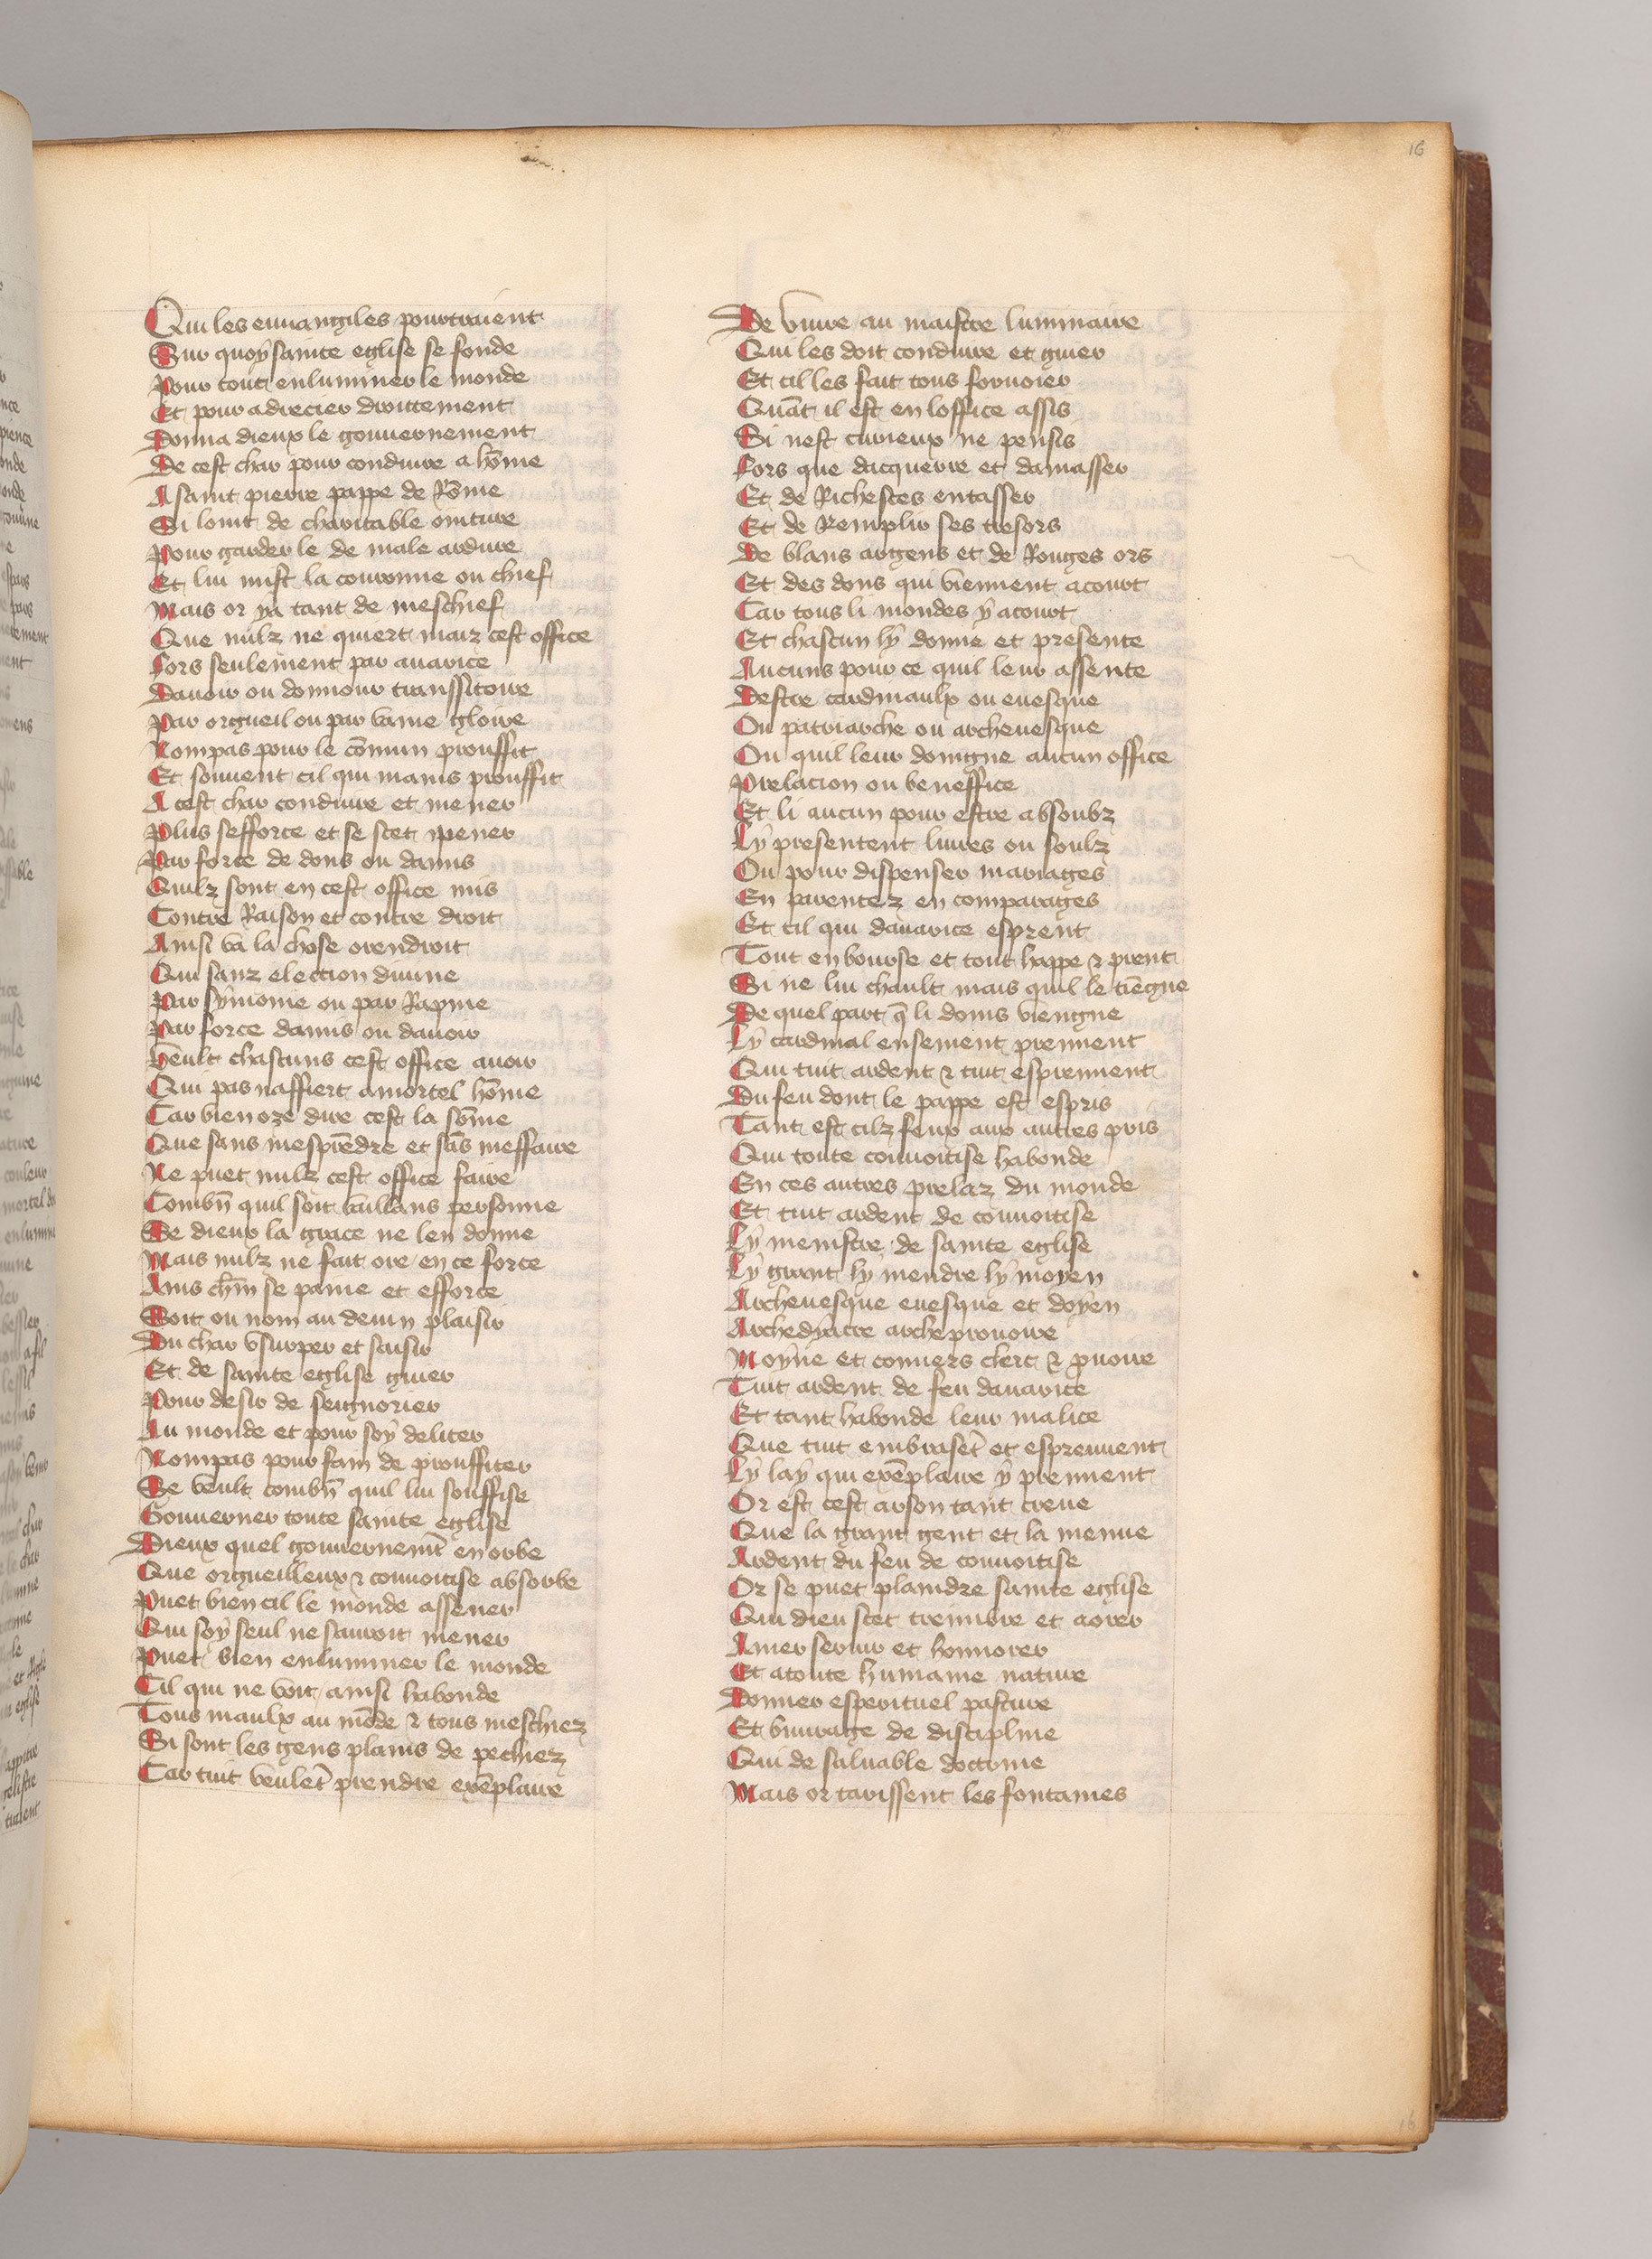 16
Qui les euuangiles pourtraient
Sur quoy sainte eglise se fonde
Pour tout enluminer le monde
Et pour adrecier droittement
Donna dieux le gouuernement
De cest char pour conduire a hõme
A saint pierre pappe de Rõme
Si loint de charitable ointure
Pour garder le de male ardure
Et lui mist la couronne ou chief
Mais or ya tant de meschief
Que nulz ne quiert maiz cest office
Fors seulement par auarice
Dauoir ou donnour transsitoire
Par orgueil ou par vaine gloire
Nompas pour le cõmun prouffit
Et souuent cil qui mains prouffit
A cest char conduire et mener
Plus sefforce et se scet pener
Par force de dons ou damis
Quilz sont en cest office mis
Contre Raison et contre droit
Ainsi va la chose orendroit
Qui sanz election diuine
Par symonie ou par Rapine
Par force damis ou dauoir
Veult chascuns cest office auoir
Qui pas naffiert amortel hõme
Car bien oze dire cest la sõme
Que sans mesprẽdre et sãs meffaire
Ne puet nulz cest office faire
Combñ quil soit vaillans personne
Se dieux la grace ne len donne
Mais nulz ne fait ore en ce force
Ains chm̃ se paine et efforce
Soit ou nom au deuin plaisir
Du char vsurper et saisir
Et de sainte eglise guier
Pour desir de seignorier
Au monde et pour soy deliter
Nompas pour faim de prouffiter
Se veult combñ quil lui souffise
Gouuerner toute sainte eglise
Dieux quel gouuernemẽt en orbe
Que orgueilleux ⁊ conuoitise absorbe
Puet bien cil le monde assener
Qui soy seul ne sauroit mener
Puet bien enluminer le monde
Cil qui ne voit ainsi habonde
Tous maulx au mõde ⁊ tous meschiez
Si sont les gens plains de pechiez
Car tuit veulẽt prendre exẽplaire
De viure au maistre luminaire
Qui les doit conduire et guier
Et cil les fait tous foruoier
Quãt il est en loffice assis
Si nest curieux ne pensis
Fors que dacquerre et damasser
Et de Richesces entasser
Et de Remplir ses tresors
De blans argens et de Rouges ors
Et des dons qui viennent acourt
Car tous li mondes y acourt
Et chascun ly donne et presente
Aucuns pour ce quil leur assente
Destre cardinaulx ou euesque
Ou patriarche ou archeuesque
Ou quil leur doingne aucun office
Prelacion ou beneffice
Et li aucun pour estre absoubz
Ly presentent liures ou soulz
Ou pour dispenser mariages
En parentez en comparages
Et cil qui dauarice esprent
Tout enbourse et tout happe ⁊ prent
Si ne lui chault mais quil le tiẽgne
De quel part q̃ li doins viengne
Ly cardinal ensement prennent
Qui tuit ardent ⁊ tuit esprennent
Du feu dont le pappe est espris
Tant est cilz feux aux autres pris
Qui toute conuoitise habonde
En ces autres prelaz du monde
Et tuit ardent de conuoitise
Ly menistre de sainte eglise
Ly grant ly mendre ly moyen
Archeuesque euesque et doyen
Archedyacre archeprouoire
Moyne et conuers clerc ⁊ prouoire
Tuit ardent de feu dauarice
Et tant habonde leur malice
Que tuit embrasẽt et esprennent
Ly lay qui exẽplaire y prennent
Or est cest arson tant creue
Que la grant gent et la menue
Ardent du feu de conuoitise
Or se puet plaindre sainte eglise
Qui dieu scet creimbre et aorer
Amer seruir et honnorer
Et atoute humaine nature
Donner esperituel pasture
Et buurage de discipline
Qui de saluable doctrine
Mais or tarissent les fontaines